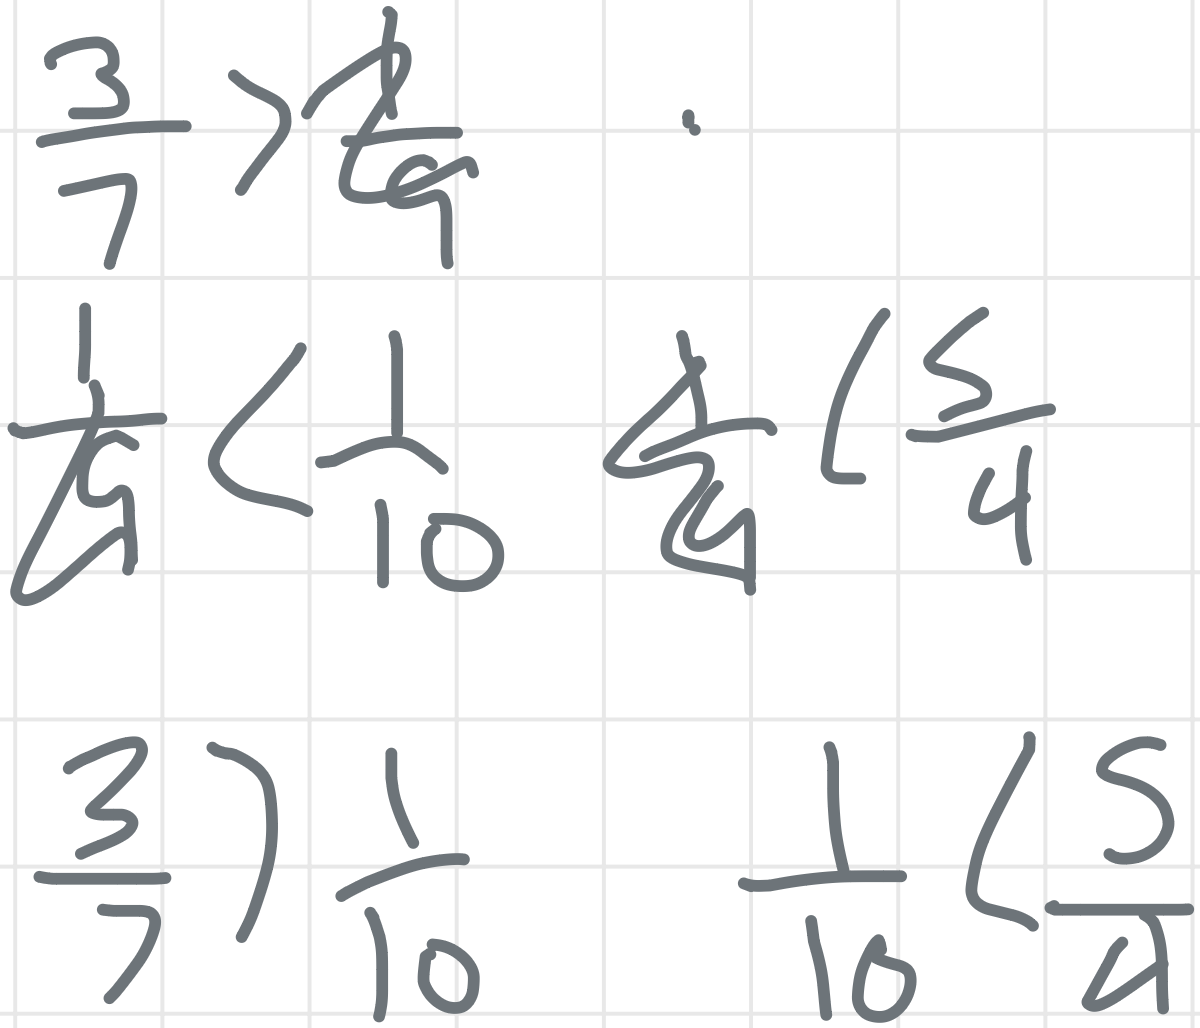 3/7 > 1/9
1/9 < 1/10 1/4 < 5/4
3/7 > 1/10 1/10 < 5/4